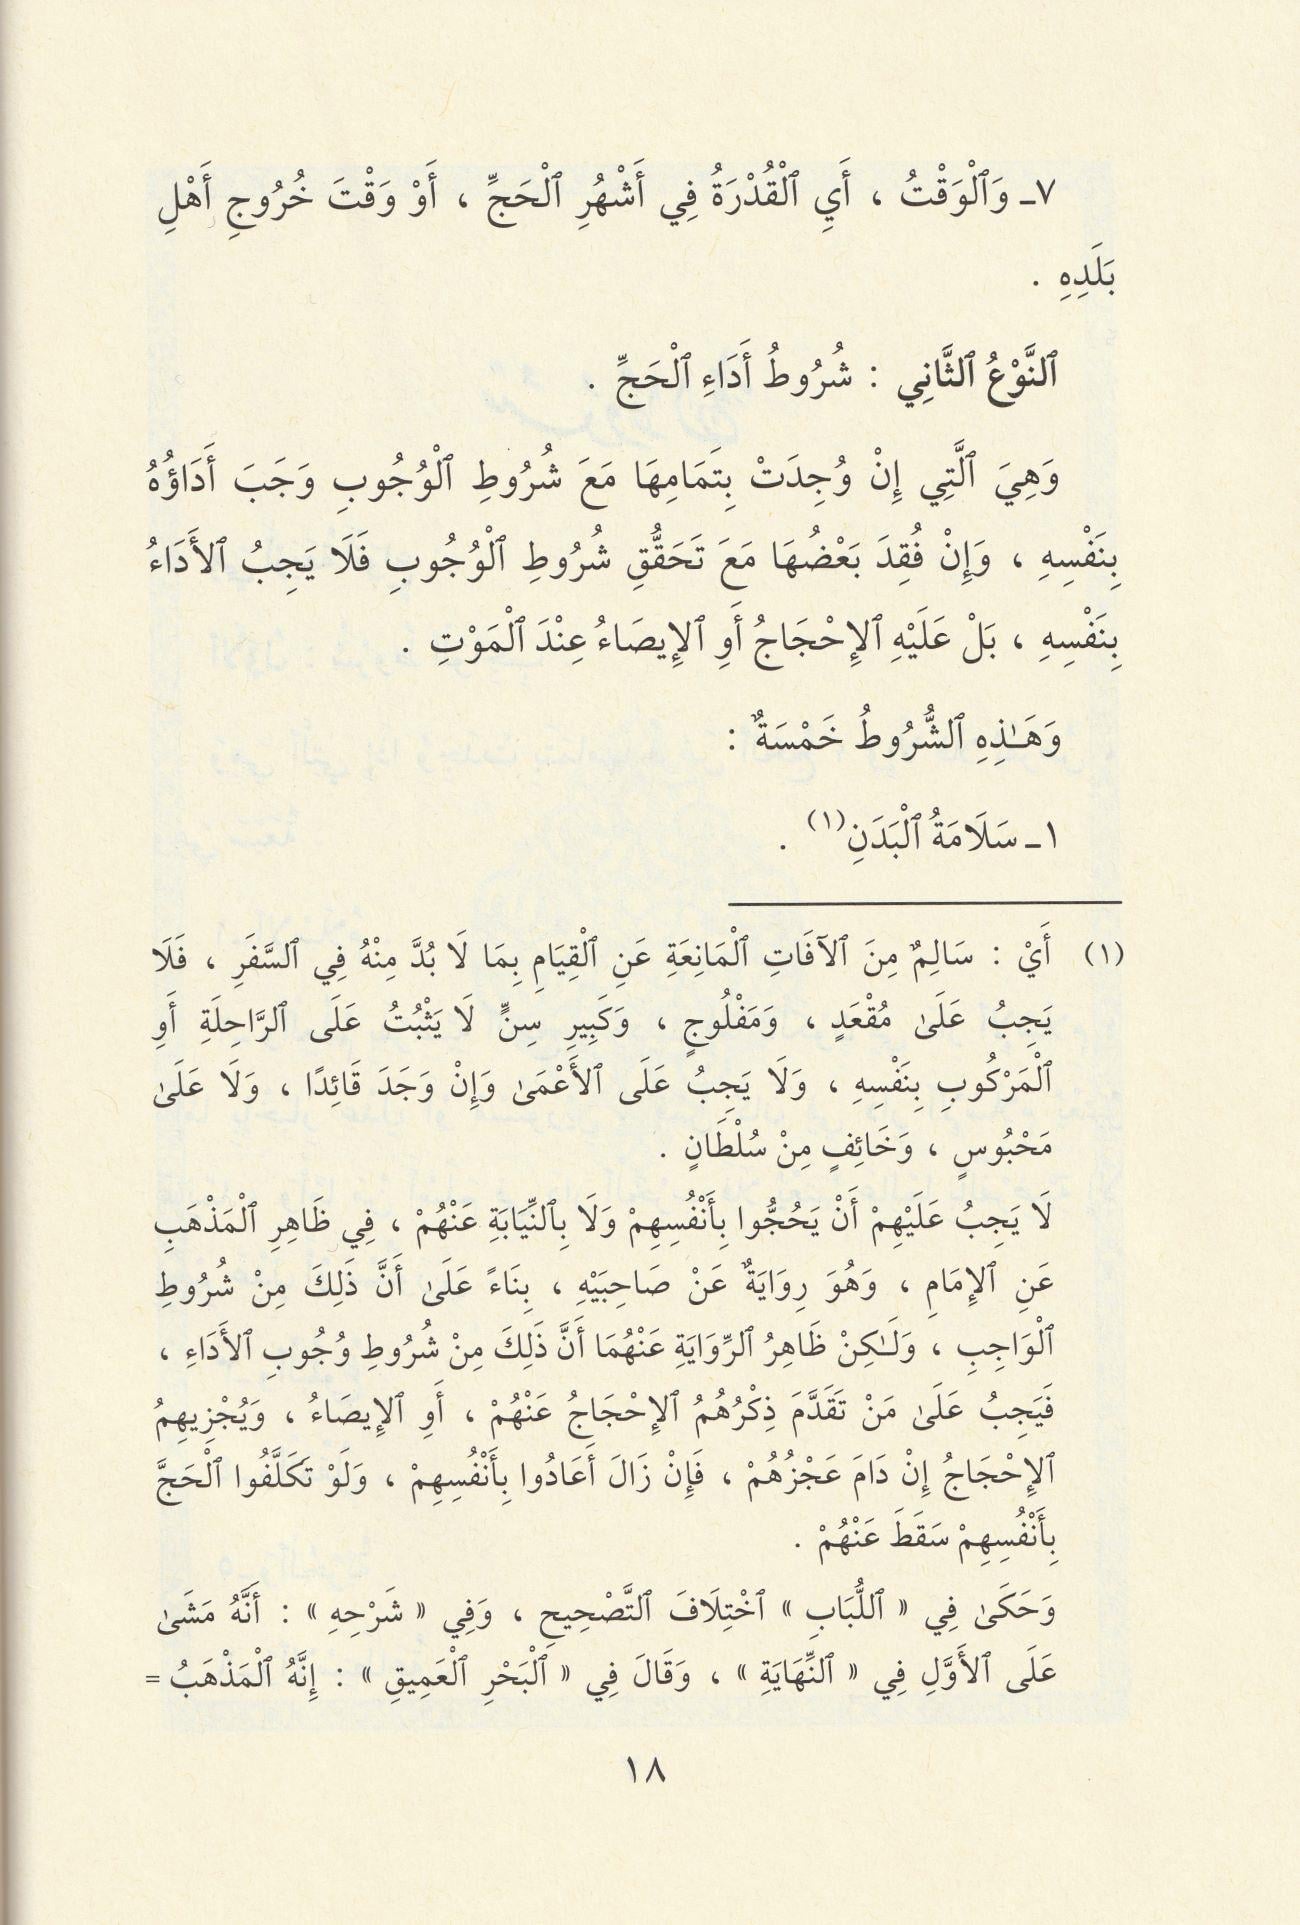 ٧ـ وَٱلْوَقْتُ ، أَيِ ٱلْقُدْرَةُ فِي أَشْهُرِ ٱلْحَجِّ ، أَوْ وَقْتَ خُرُوجِ أَهْلِ
بَلَدِهِ .
ٱلنَّوْعُ ٱلثَّانِي : شُرُوطُ أَدَاءِ ٱلْحَجِّ .
وَهِيَ ٱلَّتِي إِنْ وُجِدَتْ بِتَمَامِهَا مَعَ شُرُوطِ ٱلْوُجُوبِ وَجَبَ أَدَاؤُهُ
بِنَفْسِهِ ، وَإِنْ فُقِدَ بَعْضُهَا مَعَ تَحَقُّقِ شُرُوطِ ٱلْوُجُوبِ فَلَا يَجِبُ ٱلأَدَاءُ
بِنَفْسِهِ ، بَلْ عَلَيْهِ ٱلإِحْجَاجُ أَوِ ٱلإِيصَاءُ عِنْدَ ٱلْمَوْتِ .
وَهَـٰذِهِ ٱلشُّرُوطُ خَمْسَةٌ :
١ـ سَلَامَةُ ٱلْبَدَنِ(١) .
(١) أَيْ : سَالِمٌ مِنَ ٱلآفَاتِ ٱلْمَانِعَةِ عَنِ ٱلْقِيَامِ بِمَا لَا بُدَّ مِنْهُ فِي ٱلسَّفَرِ ، فَلَا
يَجِبُ عَلَىٰ مُقْعَدٍ ، وَمَفْلُوجٍ ، وَكَبِيرِ سِنٍّ لَا يَثْبُتُ عَلَى ٱلرَّاحِلَةِ أَوِ
ٱلْمَرْكُوبِ بِنَفْسِهِ ، وَلَا يَجِبُ عَلَى ٱلأَعْمَىٰ وَإِنْ وَجَدَ قَائِدًا ، وَلَا عَلَىٰ
مَحْبُوسٍ ، وَخَائِفٍ مِنْ سُلْطَانٍ .
لَا يَجِبُ عَلَيْهِمْ أَنْ يَحُجُّوا بِأَنْفُسِهِمْ وَلَا بِٱلنِّيَابَةِ عَنْهُمْ ، فِي ظَاهِرِ ٱلْمَذْهَبِ
عَنِ ٱلإِمَامِ ، وَهُوَ رِوَايَةٌ عَنْ صَاحِبَيْهِ ، بِنَاءً عَلَىٰ أَنَّ ذَلِكَ مِنْ شُرُوطِ
ٱلْوَاجِبِ ، وَلَـٰكِنْ ظَاهِرُ ٱلرِّوَايَةِ عَنْهُمَا أَنَّ ذَلِكَ مِنْ شُرُوطِ وُجُوبِ ٱلأَدَاءِ ،
فَيَجِبُ عَلَىٰ مَنْ تَقَدَّمَ ذِكْرُهُمُ ٱلإِحْجَاجُ عَنْهُمْ ، أَوِ ٱلإِيصَاءُ ، وَيُجْزِيهِمُ
ٱلإِحْجَاجُ إِنْ دَامَ عَجْزُهُمْ ، فَإِنْ زَالَ أَعَادُوا بِأَنْفُسِهِمْ ، وَلَوْ تَكَلَّفُوا ٱلْحَجَّ
بِأَنْفُسِهِمْ سَقَطَ عَنْهُمْ .
وَحَكَىٰ فِي « ٱللُّبَابِ » ٱخْتِلَافَ ٱلتَّصْحِيحِ ، وَفِي « شَرْحِهِ » : أَنَّهُ مَشَىٰ
عَلَى ٱلأَوَّلِ فِي « ٱلنِّهَايَةِ » ، وَقَالَ فِي « ٱلْبَحْرِ ٱلْعَمِيقِ » : إِنَّهُ ٱلْمَذْهَبُ =
١٨